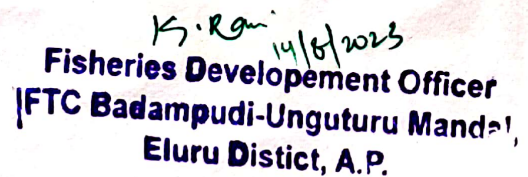 K. Rani
14/6/2023
Fisheries Developement Officer
FTC Badampudi-Unguturu Mandal,
Eluru Distict, A.P.